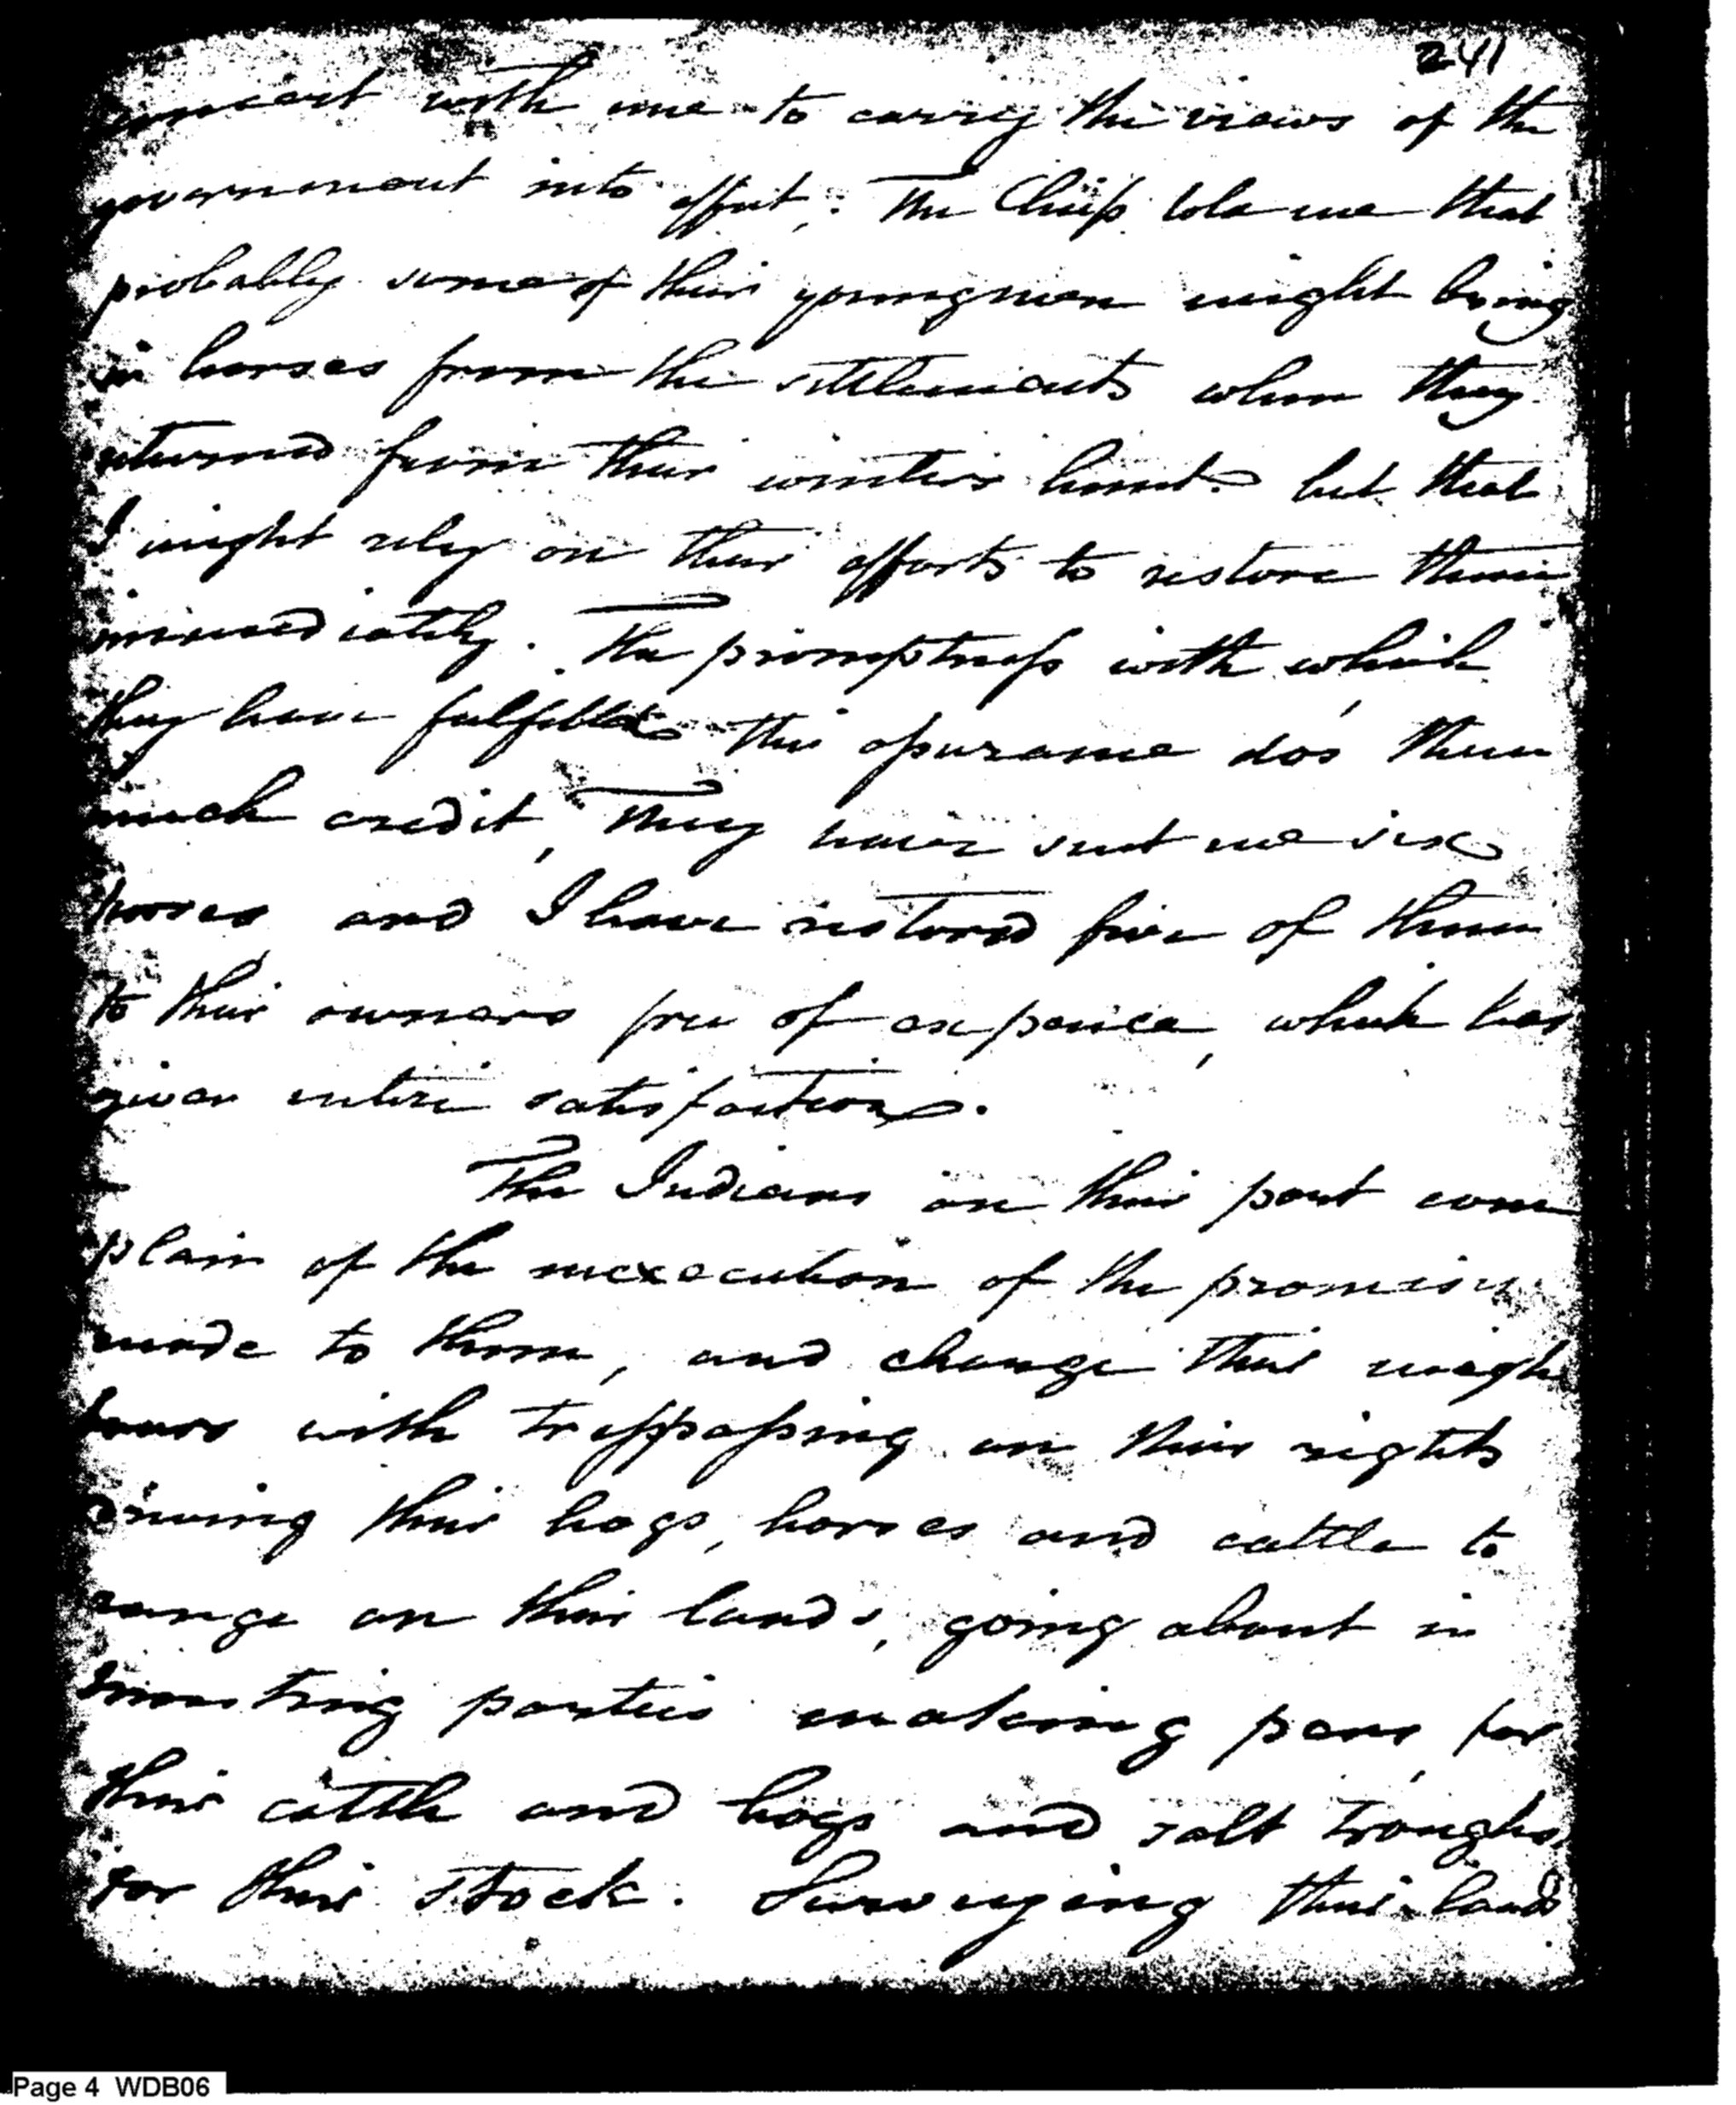 241
concert with me to carry the views of the
government into effect. The Chiefs told me that
probably some of their young men might bring
in horses from the settlements when they
returned from their winters hunt but that
I might rely on their efforts to restore them
immediately. The promptness with which
they have fulfilled this assurance dos them
much credit, They have sent me six
horses and I have restored five of them
to their owners free of expence, which has
given entire satisfaction.
The Indians on their part com
plain of the inexecution of the promises
made to them, and charge their neigh
bours with tresspassing on their rights
driving their hogs, horses and cattle to
range on their lands, going about in
hunting parties making pens, for
their cattle and hogs and salt troughs
for their stock. Surveying their lands
Page 4 WDB06